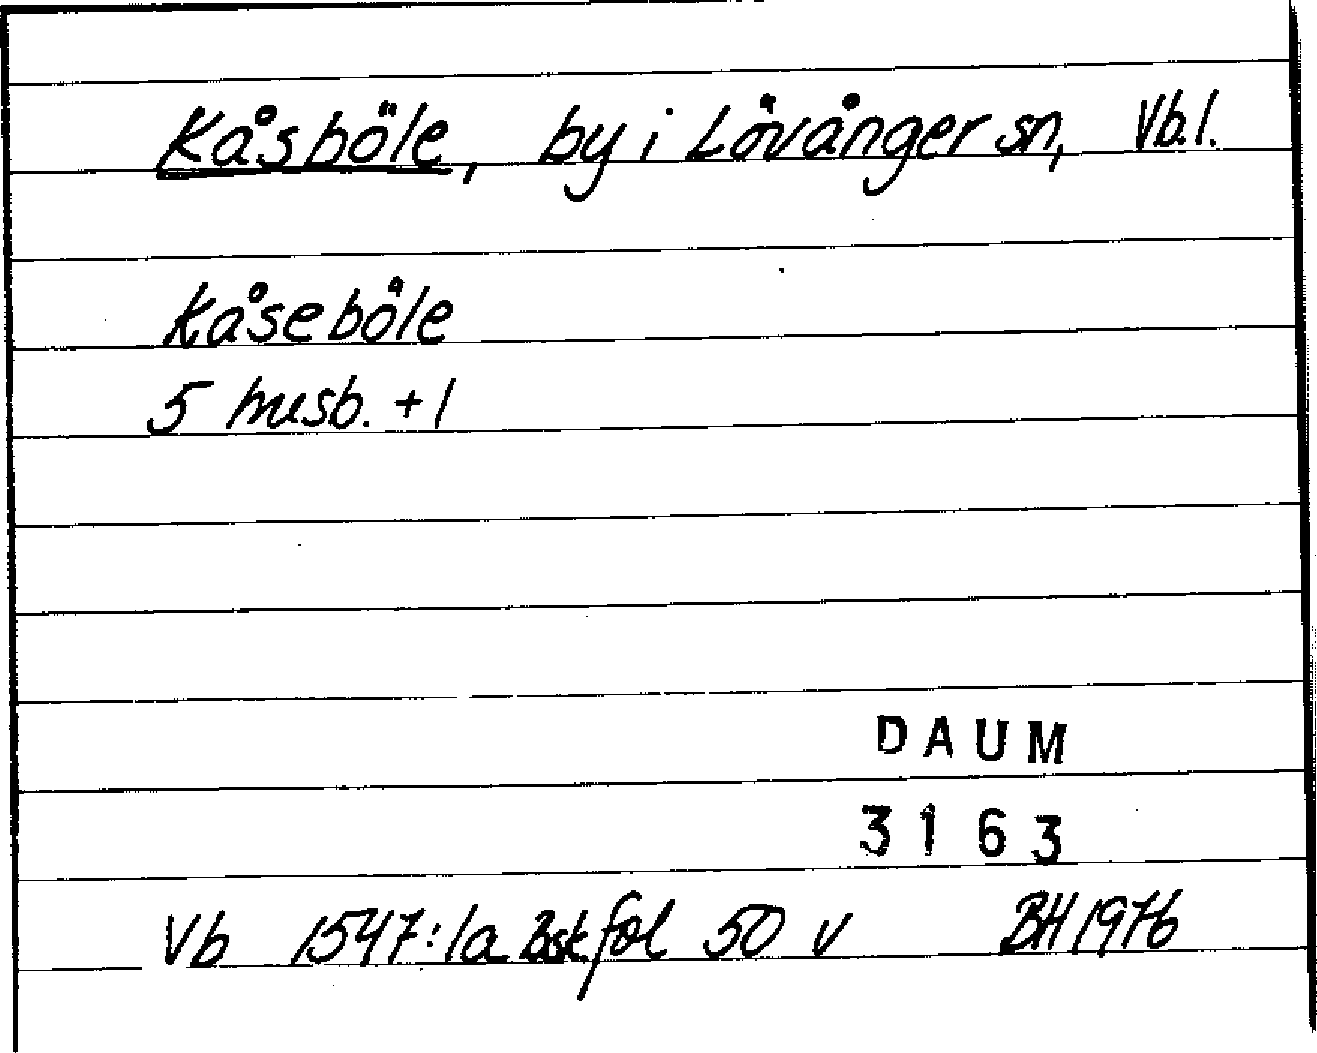 Kåsböle, by i Lövånger sn, Vb.l.
Kåseböle
5 husb. + 1
DAUM
3163
Vb 1547:1a Bsk fol 50 v BH 1976